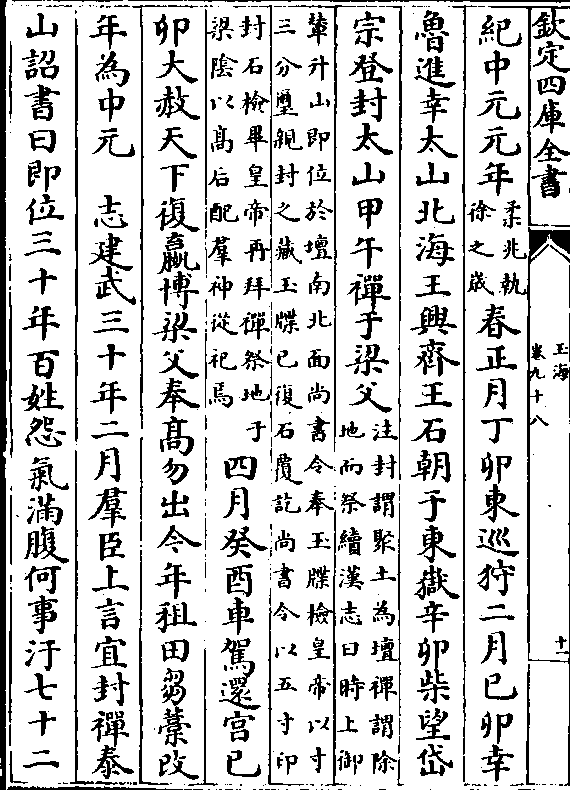 欽定四庫全書
玉海
卷九十八
十一
紀中元元年
柔兆執
徐之歲
春正月丁卯東巡狩二月己卯幸
魯進幸太山北海王興齊王石朝于東嶽辛卯柴望岱
宗登封太山甲午禪于梁父
注封謂聚土為壇禪謂除
地而祭續漢志曰時上御
輦升山即位於壇南北面尚書令奉玉牒檢皇帝以寸
三分璽親封之藏玉牒已復石覆訖尚書令以五寸印
封石檢畢皇帝再拜禪祭地于
梁陰以高后配羣神從祀焉
四月癸酉車駕還宮已
卯大赦天下復嬴博梁父奉高勿出今年租田芻藁改
年為中元　志建武三十年二月羣臣上言宜封禪泰
山詔書曰即位三十年百姓怨氣滿腹何事汙七十二